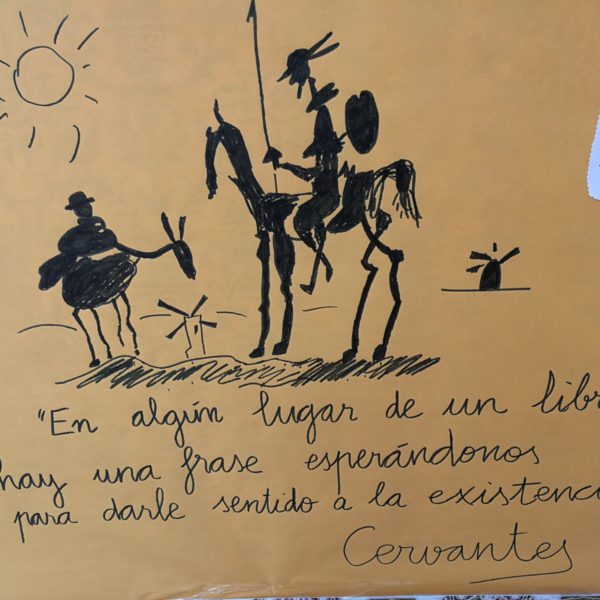 "En algún lugar de un libr
hay una frase esperándonos
para darle sentido a la existenci
Cervantes